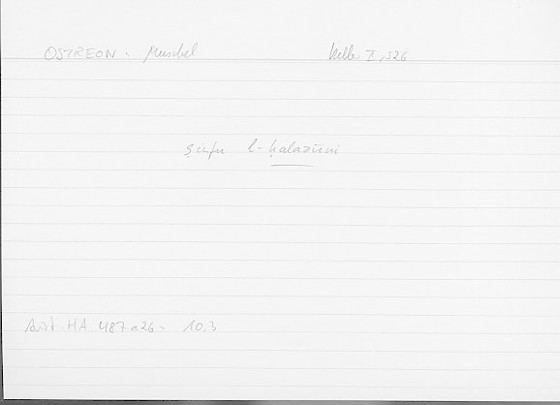 OSTREON. Muschel Keller II, 526
ṣinfu l-ḥalazūni
Arist HA 487a26 - 10,3